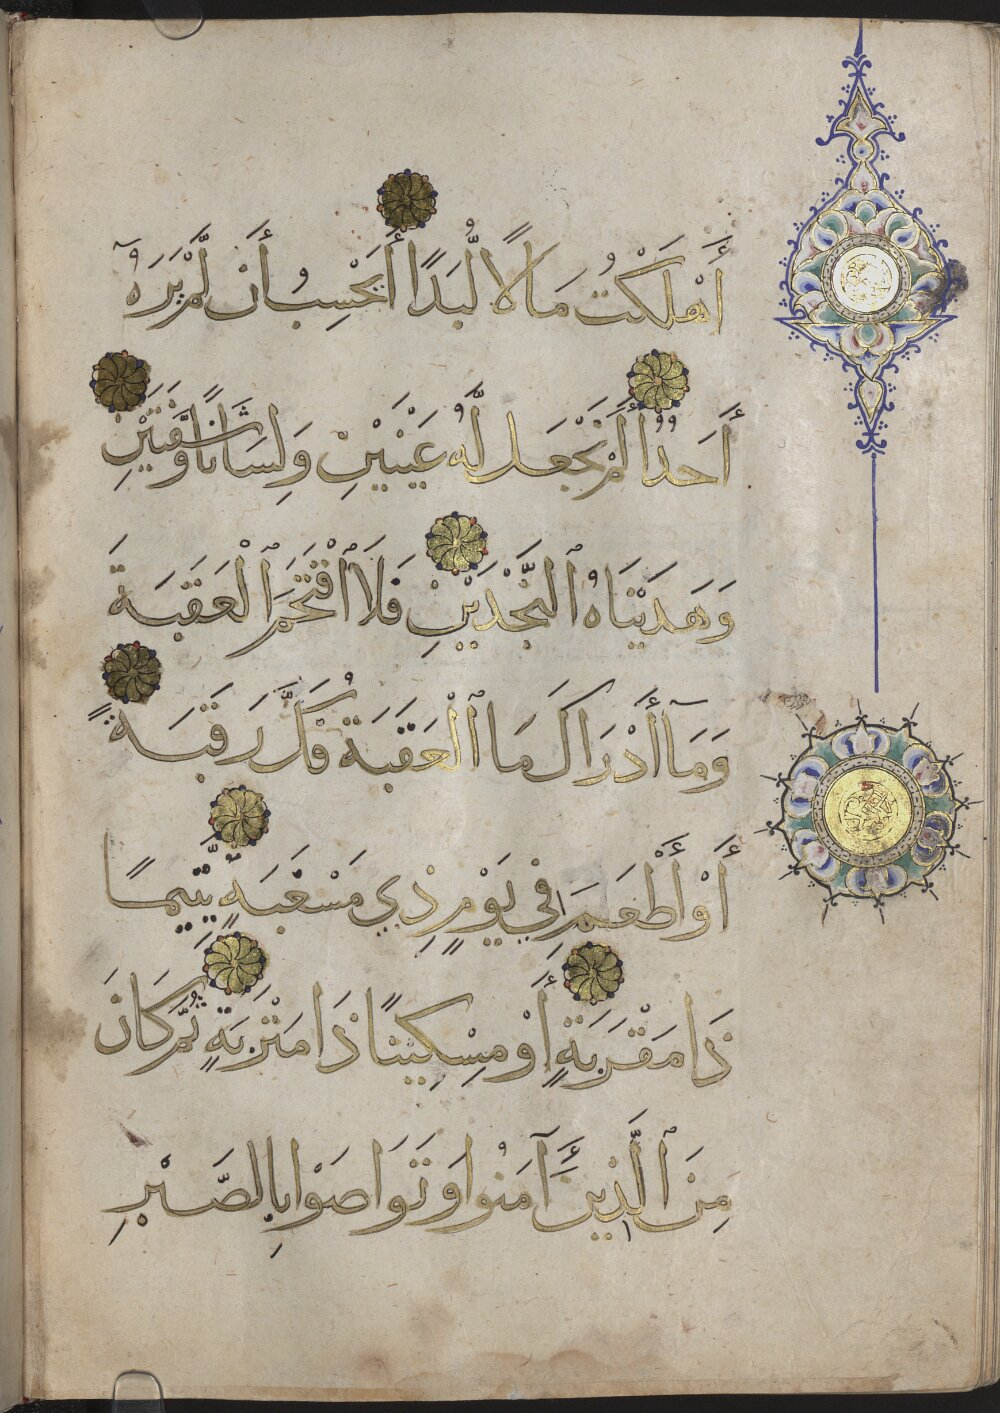 أَهْلَكْتُ مَالًا لُّبَدًا أَيَحْسِبُ أَن لَّمْ يَرَهُ
أَحَدٌ أَلَمْ نَجْعَل لَّهُ عَيْنَيْنِ وَلِسَانًا وَشَفَتَيْنِ
وَهَدَيْنَاهُ ٱلنَّجْدَيْنِ فَلَا ٱقْتَحَمَ ٱلْعَقَبَةَ
وَمَآ أَدْرَاكَ مَا ٱلْعَقَبَةُ فَكَّ رَقَبَةً
أَوْ أَطْعَمَ فِي يَوْمٍ ذِي مَسْغَبَةٍ يَتِيمًا
ذَا مَقْرَبَةٍ أَوْ مِسْكِينًا ذَا مَتْرَبَةٍ ثُمَّ كَانَ
مِنَ ٱلَّذِينَ آمَنُوا وَتَوَاصَوْا بِالصَّبْرِ